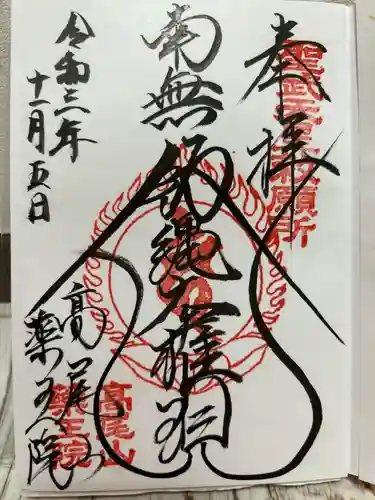 奉拝
聖武天皇勅願所
南無飯縄大権現
令和三年
十一月五日
高尾山
薬王院
高尾山
薬王院